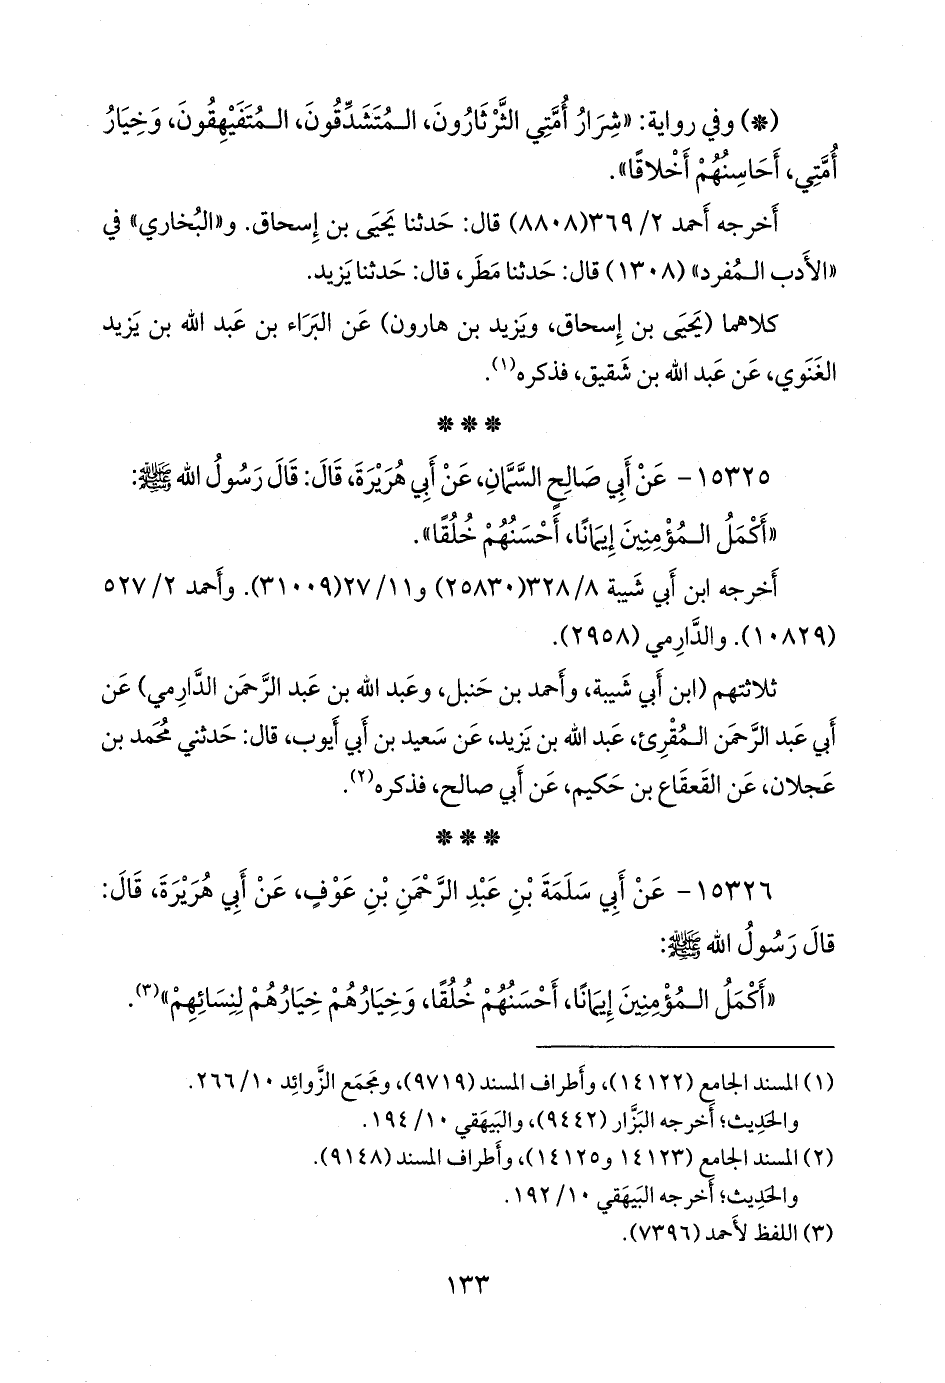 (*) وفي رواية: «شِرَارُ أُمَّتِي الثَّرْثَارُونَ، الـمُتَشَدِّقُونَ، الـمُتَفَيْهِقُونَ، وَخِيَارُ
أُمَّتِي، أَحَاسِنُهُمْ أَخْلاقًا».
أَخرجه أَحمد ٢/ ٣٦٩(٨٨٠٨) قال: حَدثنا يَحيَى بن إِسحاق. و«البُخاري» في
«الأَدب الـمُفرد» (١٣٠٨) قال: حَدثنا مَطَر، قال: حَدثنا يَزيد.
كلاهما (يَحيَى بن إِسحاق، ويَزيد بن هارون) عَن البَرَاء بن عَبد الله بن يَزيد
الغَنَوي، عَن عَبد الله بن شَقيق، فذكره(١).
* * *
١٥٣٢٥- عَنْ أَبِي صَالِحٍ السَّمَّانِ، عَنْ أَبِي هُرَيْرَةَ، قَالَ: قَالَ رَسُولُ الله ﷺ:
«أَكْمَلُ الـمُؤْمِنِينَ إِيمَانًا، أَحْسَنُهُمْ خُلُقًا».
أَخرجه ابن أَبي شَيبة ٨/ ٣٢٨(٢٥٨٣٠) و١١/ ٢٧(٣١٠٠٩). وأَحمد ٢/ ٥٢٧
(١٠٨٢٩). والدَّارِمي (٢٩٥٨).
ثلاثتهم (ابن أَبي شَيبة، وأَحمد بن حَنبل، وعَبد الله بن عَبد الرَّحمَن الدَّارِمي) عَن
أَبي عَبد الرَّحمَن الـمُقْرِئ، عَبد الله بن يَزيد، عَن سَعيد بن أَبي أَيوب، قال: حَدثني مُحمد بن
عَجلان، عَن القَعقَاع بن حَكيم، عَن أَبي صالح، فذكره(٢).
* * *
١٥٣٢٦- عَنْ أَبِي سَلَمَةَ بْنِ عَبْدِ الرَّحْمَنِ بْنِ عَوْفٍ، عَنْ أَبِي هُرَيْرَةَ، قَالَ:
قالَ رَسُولُ الله ﷺ:
«أَكْمَلُ الـمُؤْمِنِينَ إِيمَانًا، أَحْسَنُهُمْ خُلُقًا، وَخِيَارُهُمْ خِيَارُهُمْ لِنِسَائِهِمْ»(٣).
(١) المسند الجامع (١٤١٢٢)، وأَطراف المسند (٩٧١٩)، ومَجمَع الزَّوائِد ١٠/ ٢٦٦.
والحَدِيث؛ أَخرجه البَزَّار (٩٤٤٢)، والبَيهَقي ١٠/ ١٩٤.
(٢) المسند الجامع (١٤١٢٣ و١٤١٢٥)، وأَطراف المسند (٩١٤٨).
والحَدِيث؛ أَخرجه البَيهَقي ١٠/ ١٩٢.
(٣) اللفظ لأَحمد (٧٣٩٦).
١٣٣